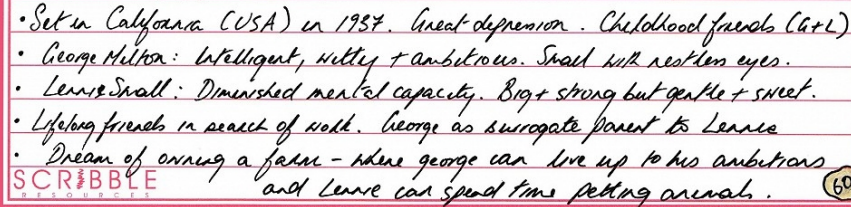 • Set in California (USA) in 1937. Great depression. Childhood friends (G+L)
• George Milton: Intelligent, witty + ambitious. Small with restless eyes.
• Lennie Small: Diminished mental capacity. Big + strong but gentle + sweet.
• Lifelong friends in search of work. George as surrogate parent to Lennie
• Dream of owning a farm – where george can live up to his ambitions
and Lennie can spend time petting animals.
SCRIBBLE
RESOURCES
60